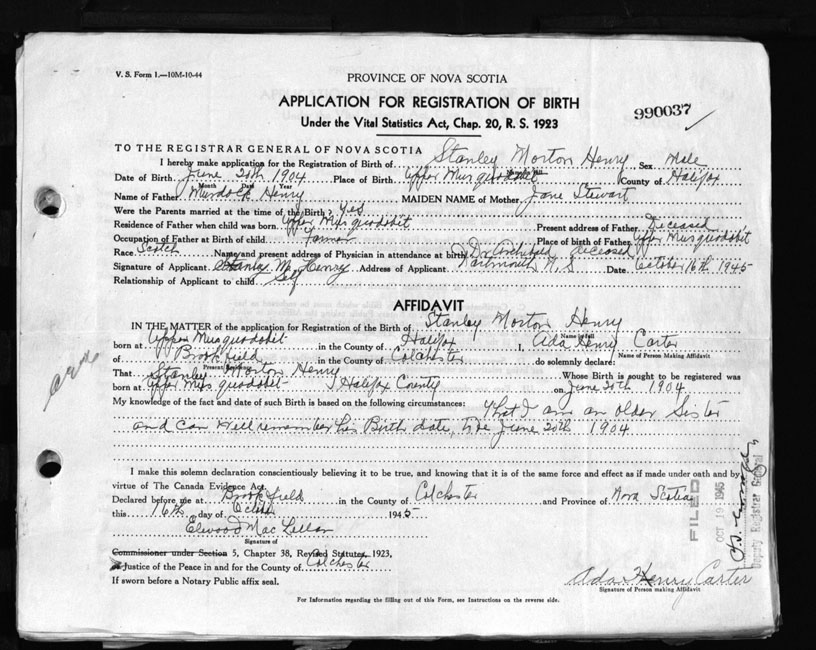 V. S. Form 1.—10M-10-44
PROVINCE OF NOVA SCOTIA
APPLICATION FOR REGISTRATION OF BIRTH
Under the Vital Statistics Act, Chap. 20, R. S. 1923
990037
TO THE REGISTRAR GENERAL OF NOVA SCOTIA
I hereby make application for the Registration of Birth of Stanley Morton Henry Sex Male
Date of Birth June 20th 1904 Place of Birth Upper Musquodoboit County of Halifax
Month Date Year
Name of Father Murdock Henry MAIDEN NAME of Mother Jane Stewart
Were the Parents married at the time of the Birth? Yes
Residence of Father when child was born Upper Musquodobit Present address of Father Deceased
Occupation of Father at Birth of child Farmer Place of birth of Father Upper Musquodobit
Race Scotch Name and present address of Physician in attendance at birth Dr Archibald deceased
Signature of Applicant Stanley M. Henry Address of Applicant Dartmouth N. S Date October 16th 1945
Relationship of Applicant to child Self
AFFIDAVIT
IN THE MATTER of the application for Registration of the Birth of Stanley Morton Henry
Name in full
born at Upper Musquodobit in the County of Halifax I, Ada Henry Carter
Name of Person Making Affidavit
of Brookfield in the County of Colchester do solemnly declare:
Present Residence
That Stanley Morton Henry Whose Birth is sought to be registered was
born at Upper Musquodobit Halifax County on June 20th 1904
My knowledge of the fact and date of such Birth is based on the following circumstances: That I am an older Sister
and can well remember his Birth date, to be June 20th 1904
I make this solemn declaration conscientiously believing it to be true, and knowing that it is of the same force and effect as if made under oath and by
virtue of The Canada Evidence Act.
Declared before me at Brookfield in the County of Colchester and Province of Nova Scotia
this 16th day of October 1945
Elwood MacLellan
Signature of
Commissioner under Section 5, Chapter 38, Revised Statutes, 1923,
a Justice of the Peace in and for the County of Colchester
If sworn before a Notary Public affix seal.
Ada Henry Carter
Signature of Person making Affidavit
For Information regarding the filling out of this Form, see Instructions on the reverse side.
FILED
OCT 19 1945
Deputy Registrar General